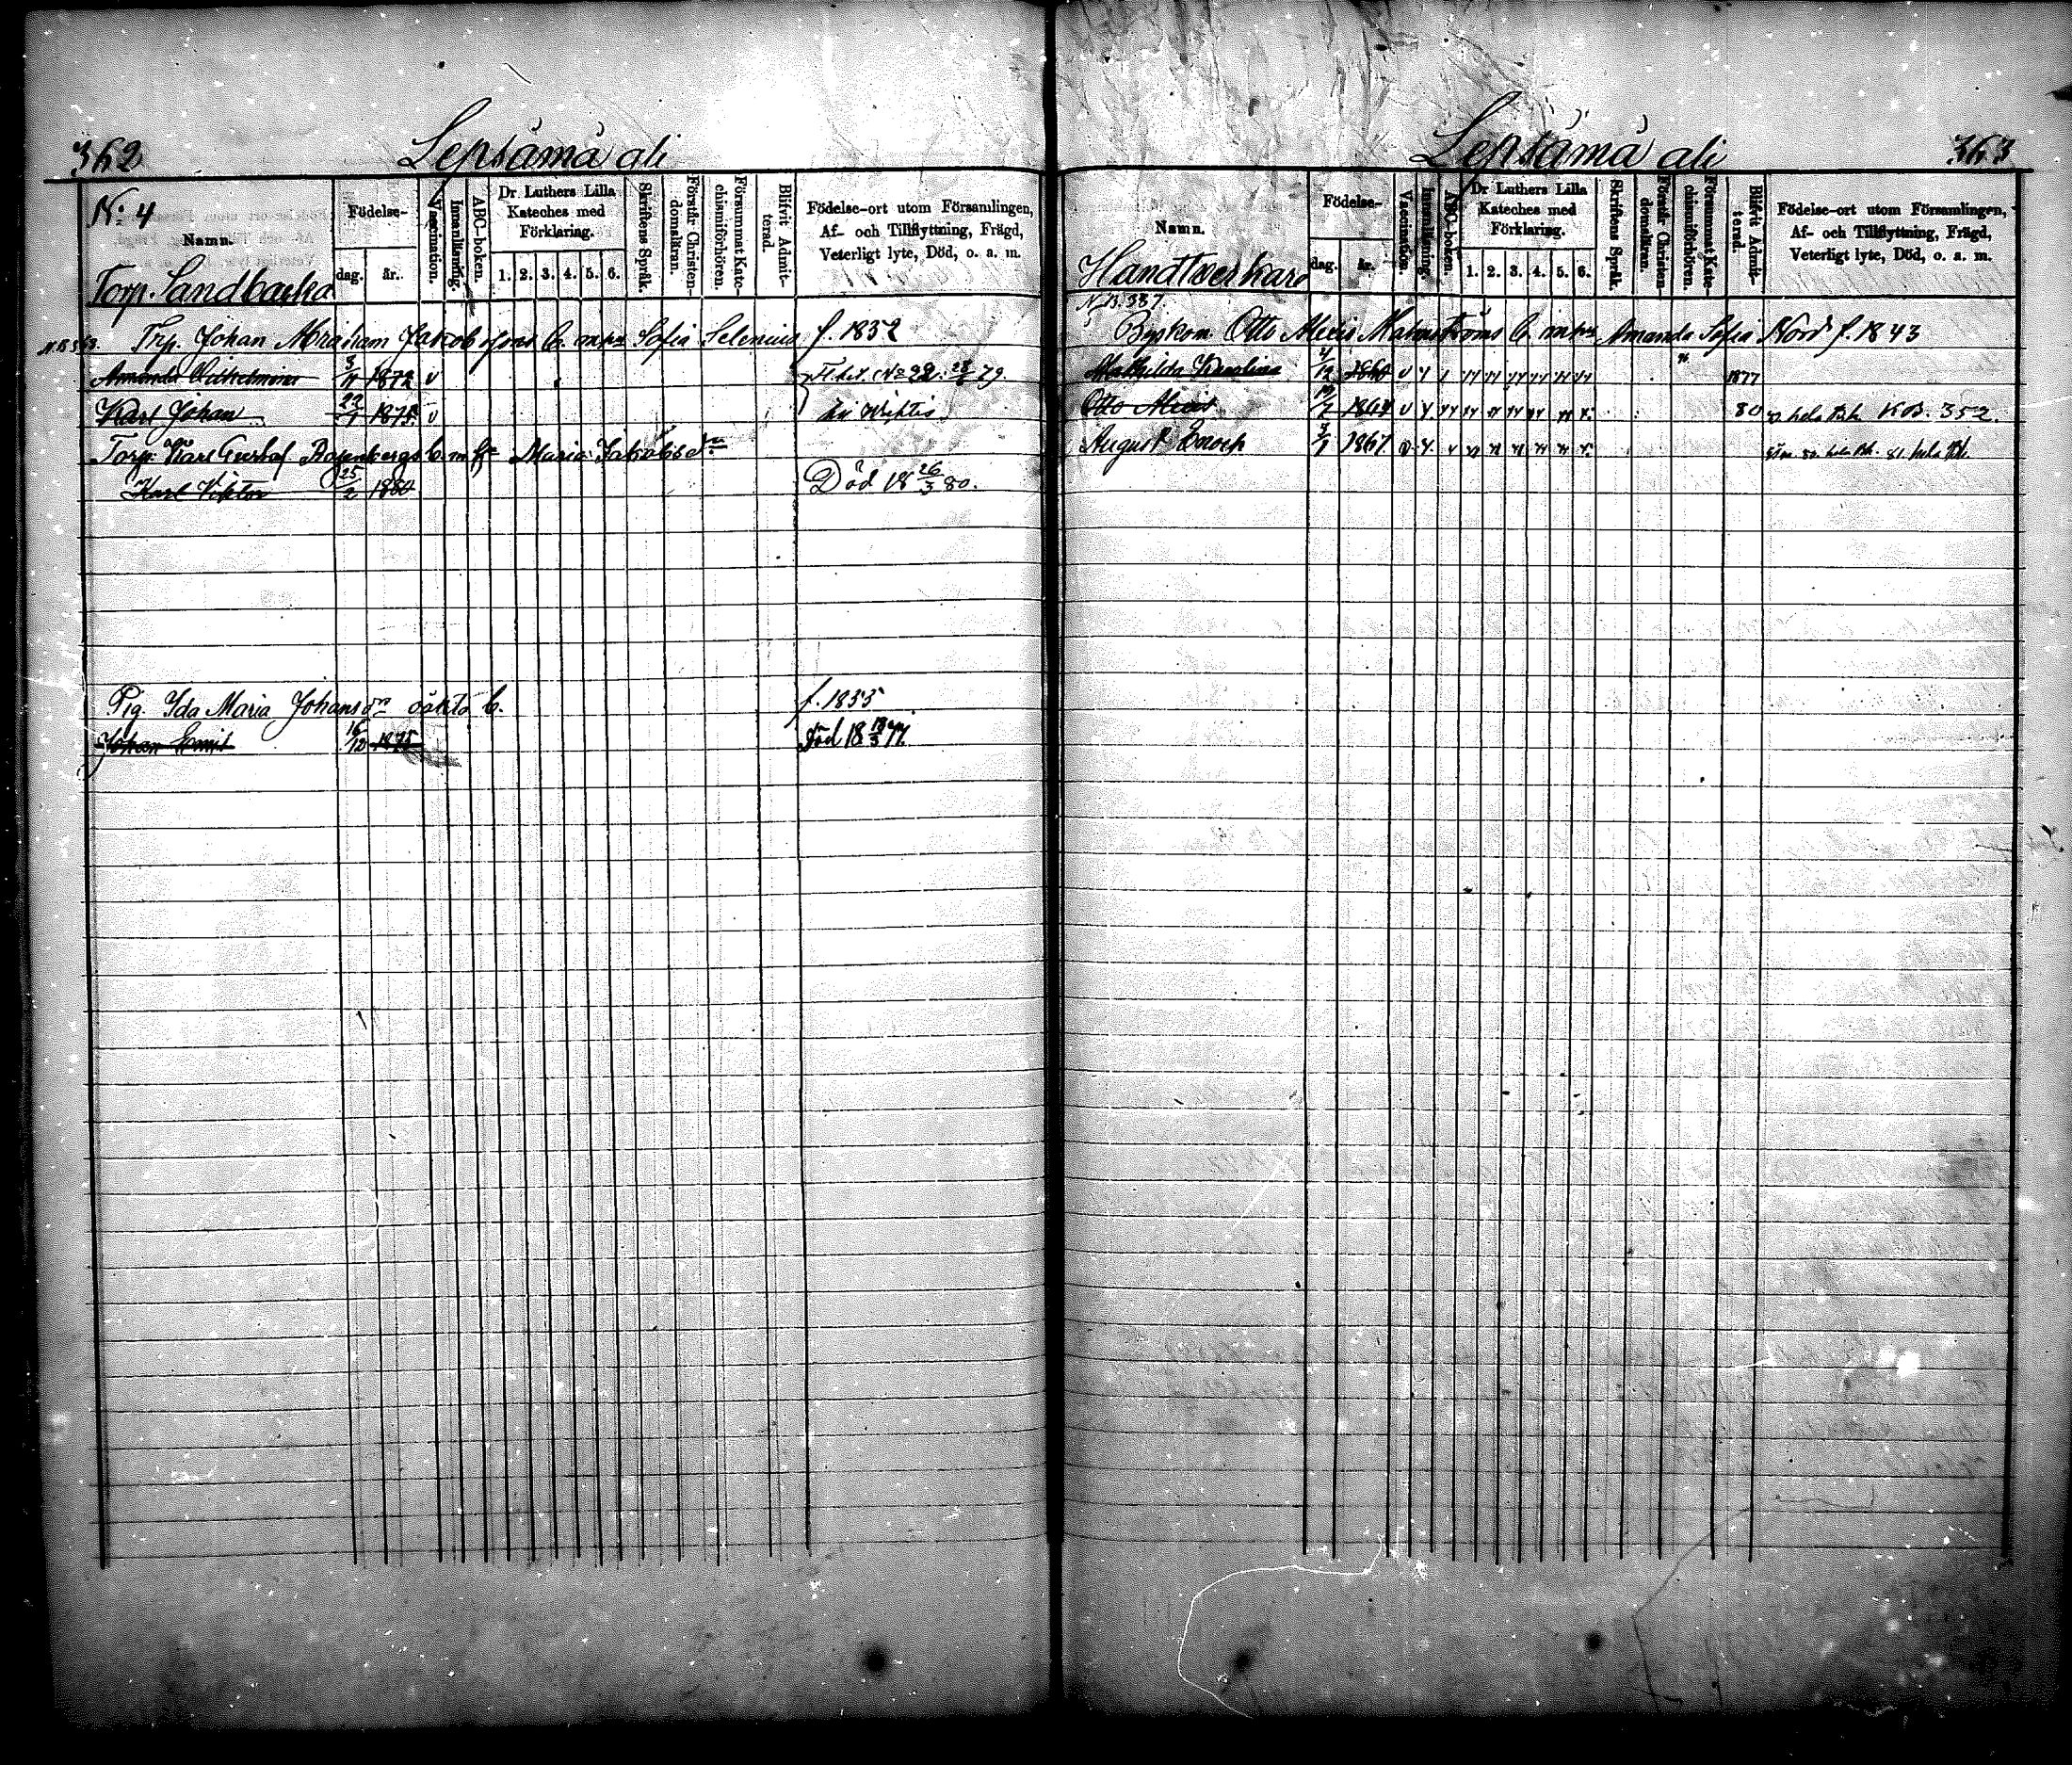 362
Lepsämä ali
No 4
Namn.
Torp. Sandbacka
Födelse-
dag.
år.
Vaccination.
Innanläsning.
ABC-boken.
Dr Luthers Lilla
Kateches med
Förklaring.
1. 2. 3. 4. 5. 6.
Skriftens Språk.
Förstår Christen-
domsläran.
Försummat Kate-
chismiförhören.
Blifvit Admit-
terad.
Födelse-ort utom Församlingen,
Af- och Tillflyttning, Frägd,
Veterligt lyte, Död, o. a. m.
Trp. Johan Abraham Jakobssons b. m. hu Sofia Selenius f. 1832
Amanda Wilhelmina 3/11 1872 v No 22. 79.
Karl Johan 1875. v
Torp. Karl Gustaf Rosenbergs b. m. hu Maria Jakobs dr
Karl Viktor 25/2 1880 Död 18 26/3 80.
Pig. Ida Maria Johans dr oäkta b. f. 1855
Johan Emil 16/12 1875 Död 18 77.
Lepsämä ali
363
Namn.
Handtverkare
Födelse-
dag.
år.
Vaccination.
Innanläsning.
ABC-boken.
Dr Luthers Lilla
Kateches med
Förklaring.
1. 2. 3. 4. 5. 6.
Skriftens Språk.
Förstår Christen-
domsläran.
Försummat Kate-
chismiförhören.
Blifvit Admit-
terad.
Födelse-ort utom Församlingen,
Af- och Tillflyttning, Frägd,
Veterligt lyte, Död, o. a. m.
N.B. 337.
Otto Alexis Malmströms b. m. hu Amanda Sofia Nord f. 1843
Mathilda Karolina 1860 v 1877
Otto Alexis v 80 K.B. 352.
August Enoch 1867